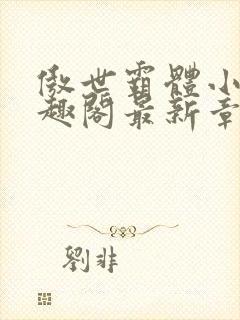 傲世霸體小
趣閣最新章
劉非